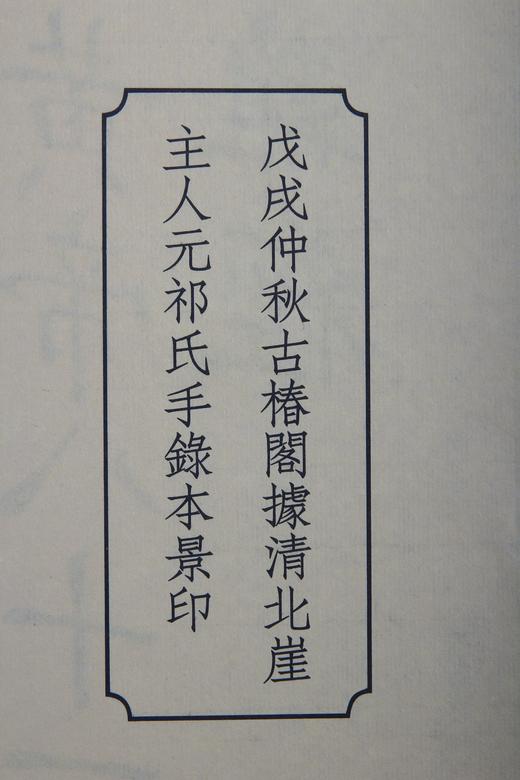 戊戌仲秋古椿閣據清北崖
主人元祁氏手錄本景印